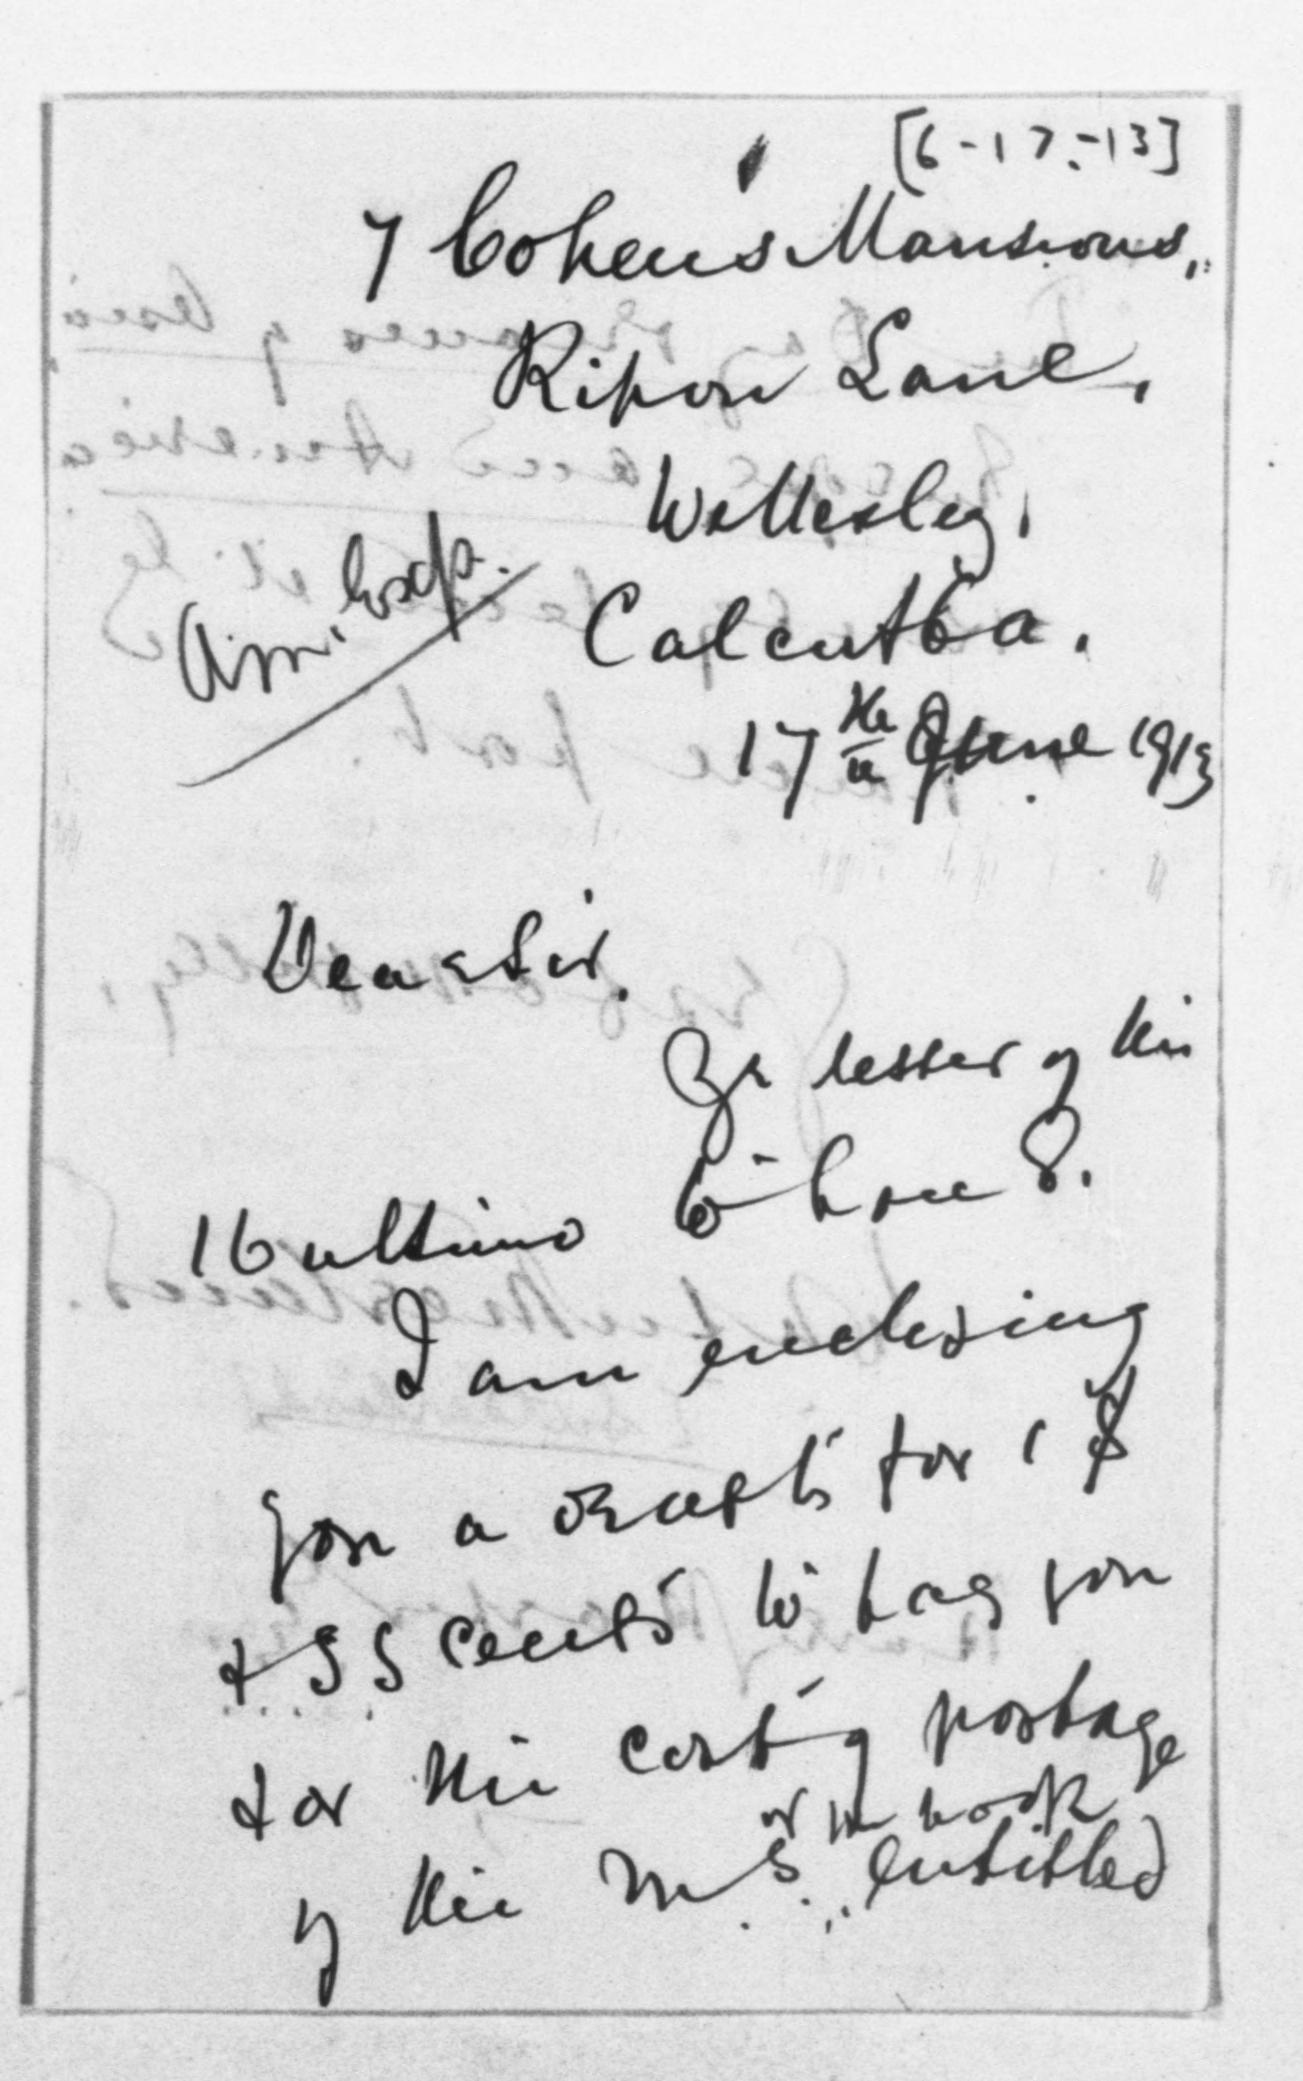 [6-17-13]
7 Cohens Mansions,
Ripon Lane,
Wellesley,
Am. Exp.
Calcutta.
17th June 1913
Dear Sir,
Yr letter of the
16 ultimo to hand.
I am enclosing
you a draft for 1 $
& 55 cents to pay you
for the cost of postage
or the book
of the MS entitled